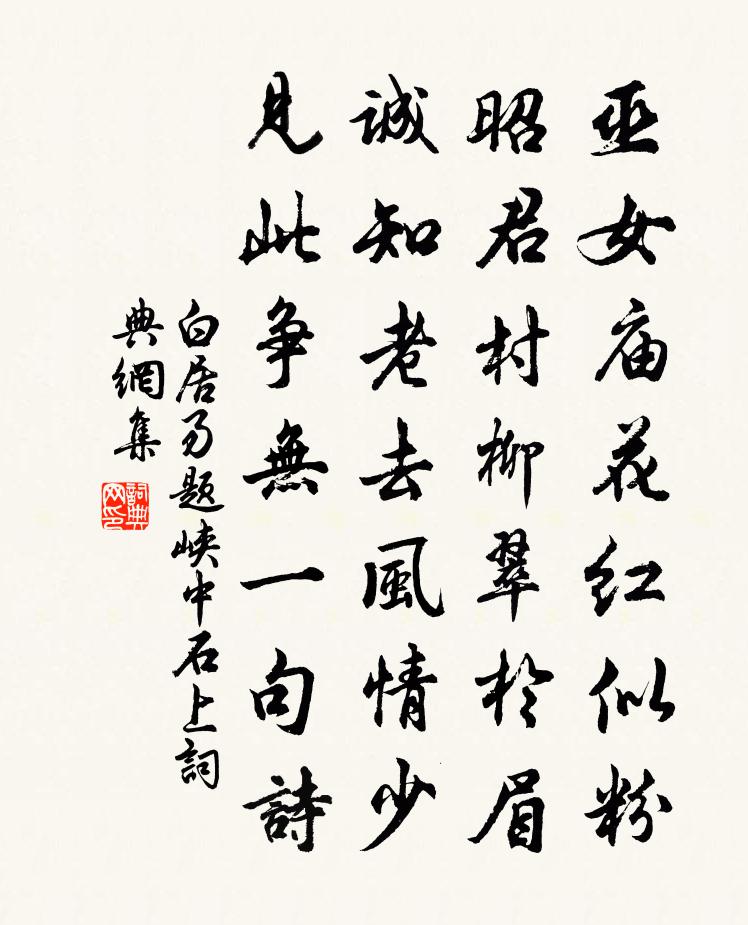 巫女庙花红似粉
昭君村柳翠於眉
誠知老去風情少
見此争無一句詩
白居易题峡中石上詞
典網集
詞典网印